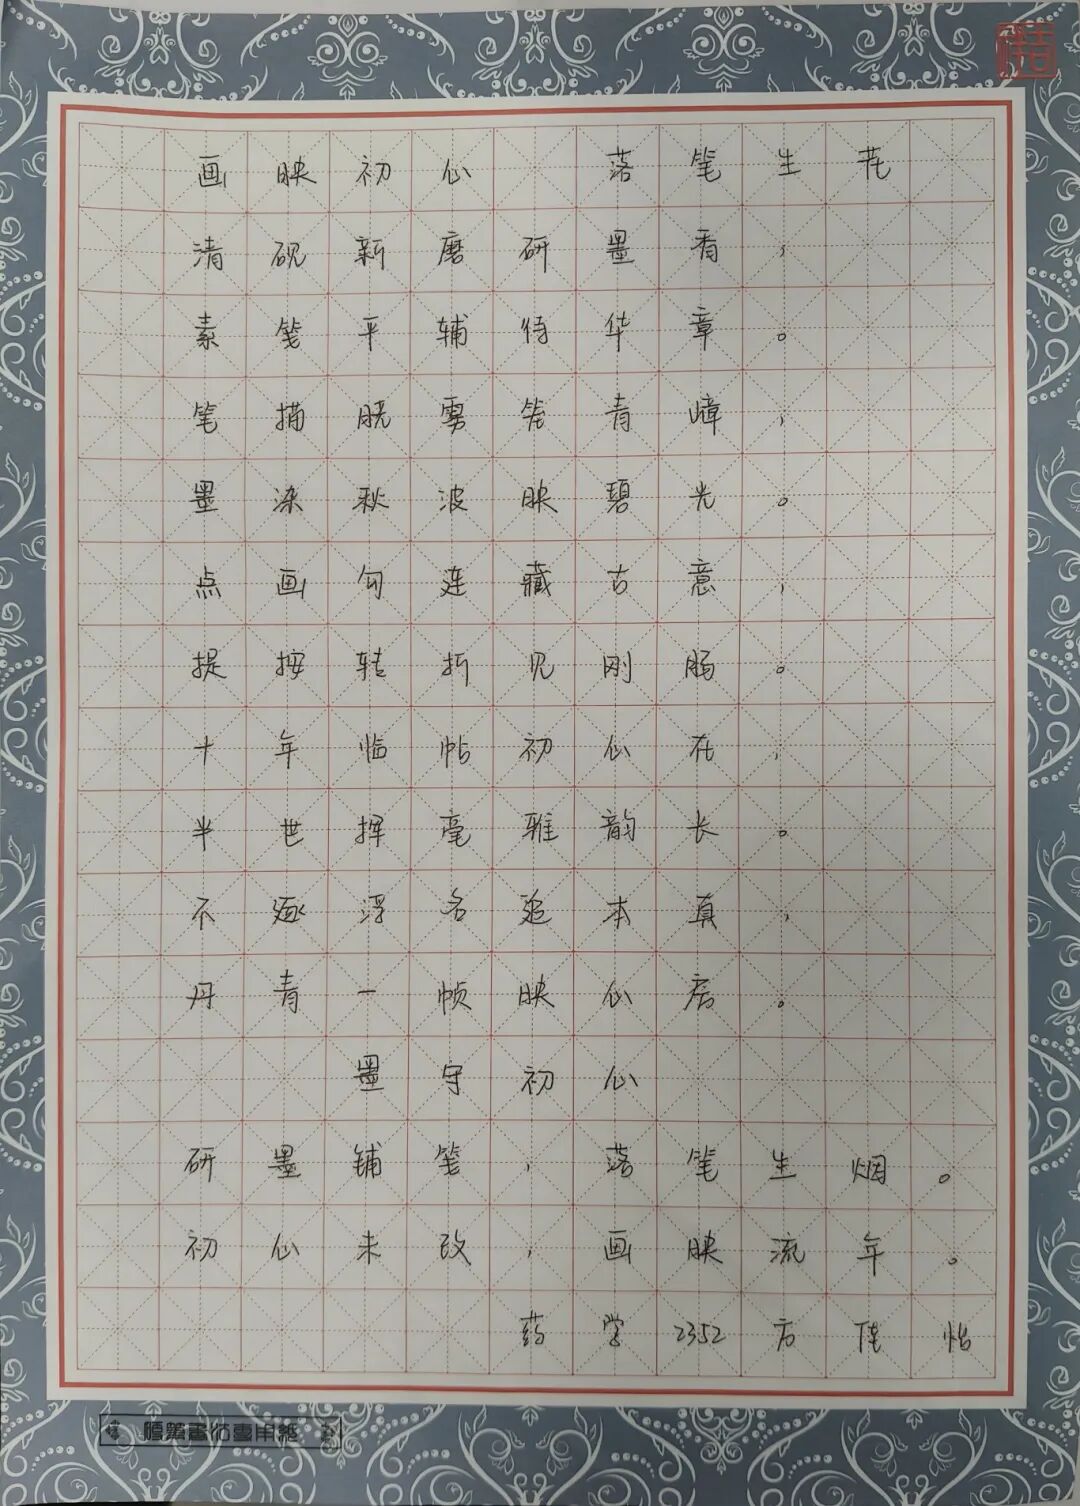 画映初心 落笔生花
清砚新磨研墨香，
素笺平辅待华章。
笔描晓雾笼青嶂，
墨染秋波映碧光。
点画勾连藏古意，
提按转折见刚肠。
十年临帖初心在，
半世挥毫雅韵长。
不逐浮名追本真，
丹青一帧映心房。
墨守初心
研墨铺笺，落笔生烟。
初心未改，画映流年。
药学2352方佳怡